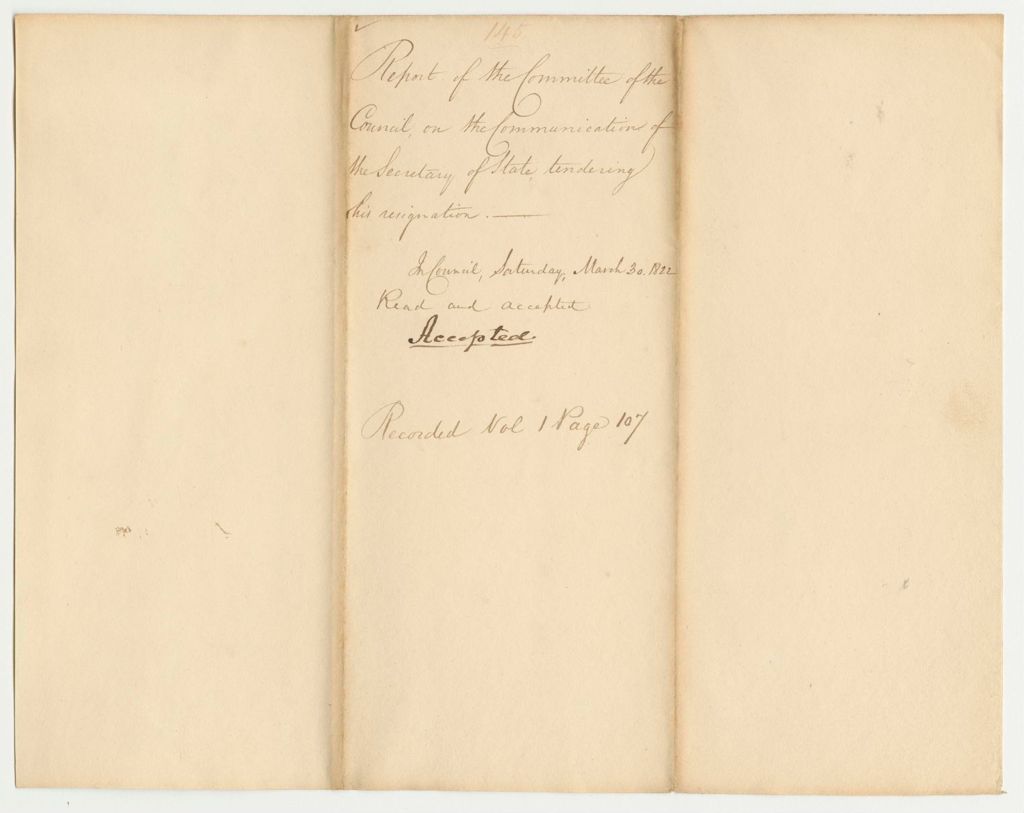 145
Report of the Committee of the
Council, on the Communication of
the Secretary of State, tendering
his resignation. —
In Council, Saturday, March 30. 1822
Read and accepted
Accepted.
Recorded Vol 1 Page 107